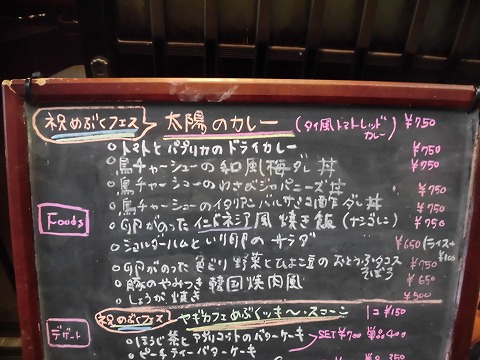 祝めぶくフェス 太陽のカレー (タイ風トマトレッドカレー) ¥750
○トマトとパプリカのドライカレー ¥750
○鳥チャーシューの和風梅ダレ丼 ¥750
○鳥チャーシューのわさびジャパニーズ丼 ¥750
○鳥チャーシューのイタリアンバルサミコ ダレ丼 ¥750
Foods
○卵がのったインドネシア風焼き飯 (ナシゴレン) ¥750
○ショルダーハムといり卵のサラダ ¥650 (ライス+¥100
○卵がのった色どり野菜とひよこ豆の そぼろ ¥750
○豚のやみつき韓国焼肉風 ¥650
○しょうが焼き ¥500
祝めぶくフェス ヤギカフェめぶクッキ〜・スコーン 1コ ¥150
デザート
○ほうじ茶とアプリコットのバターケーキ SET¥700 単品400
○ピーチティーバターケーキ